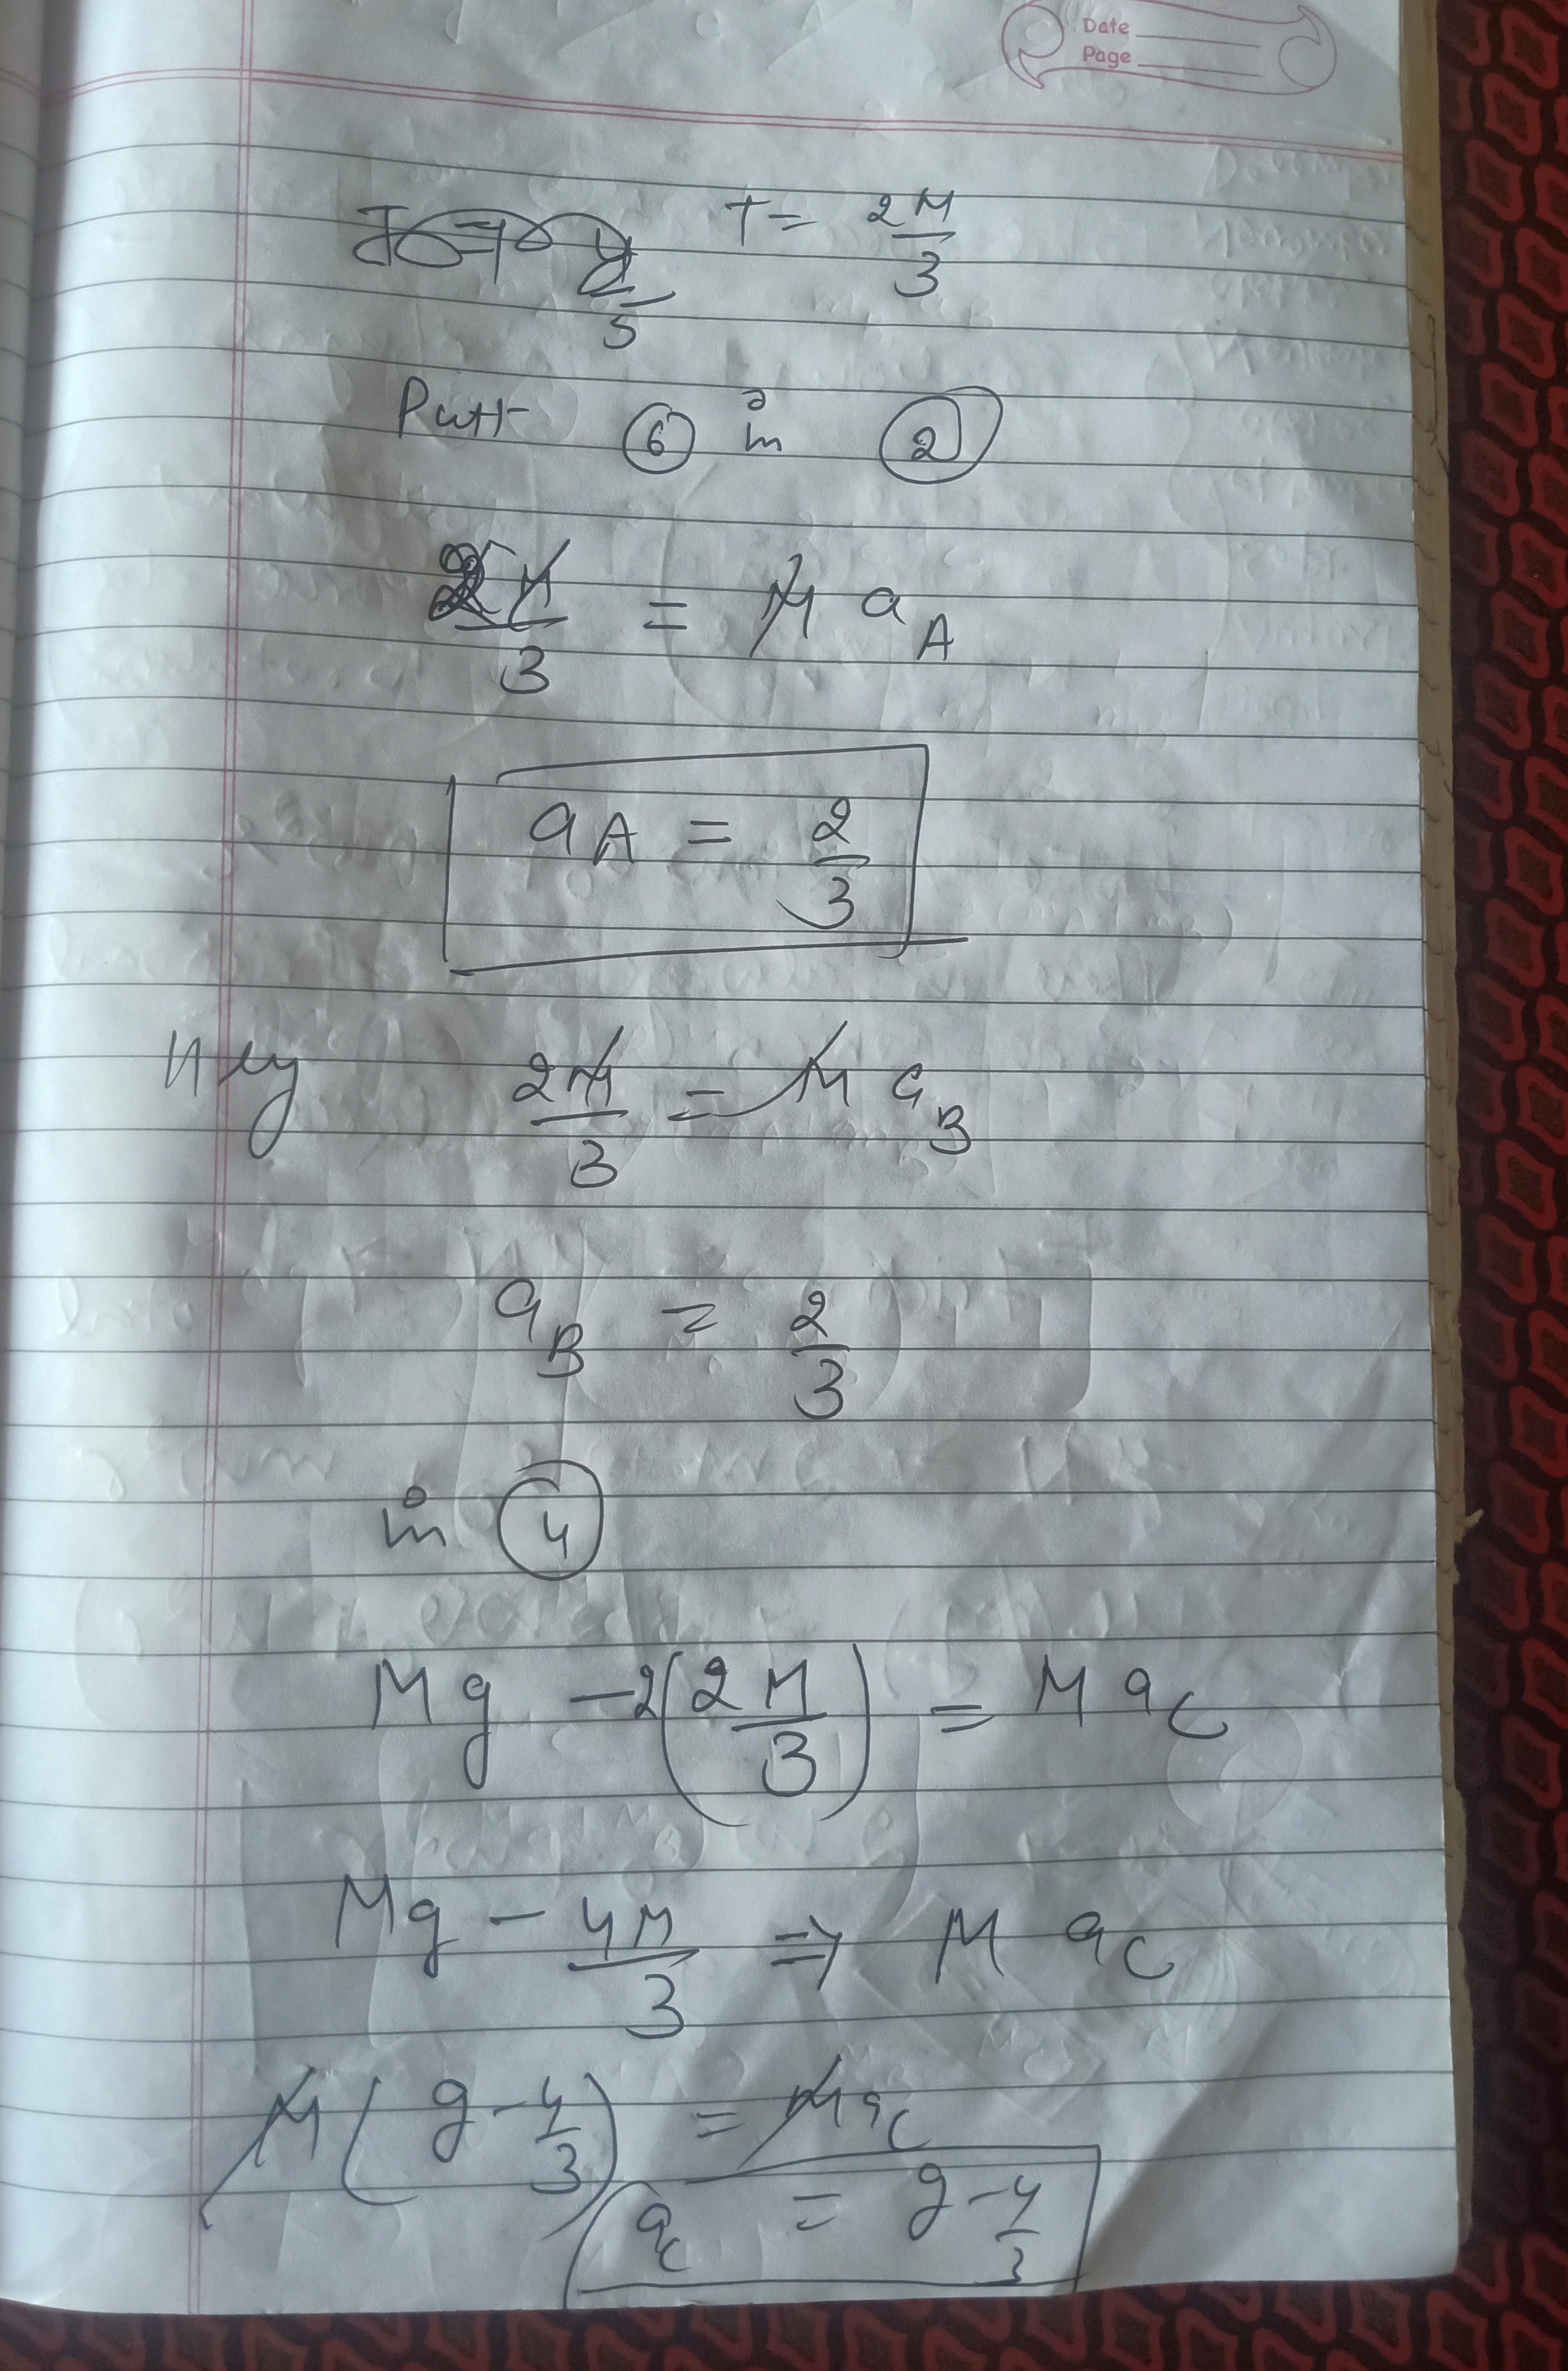 Date
Page
T = 2M/3
Putt ⑥ in ②
2M/3 = M a_A
a_A = 2/3
lly 2M/3 = M a_B
a_B = 2/3
in ④
Mg - 2(2M/3) = M a_c
Mg - 4M/3 ⇒ M a_c
M(g - 4/3) = M a_c
a_c = g - 4/3